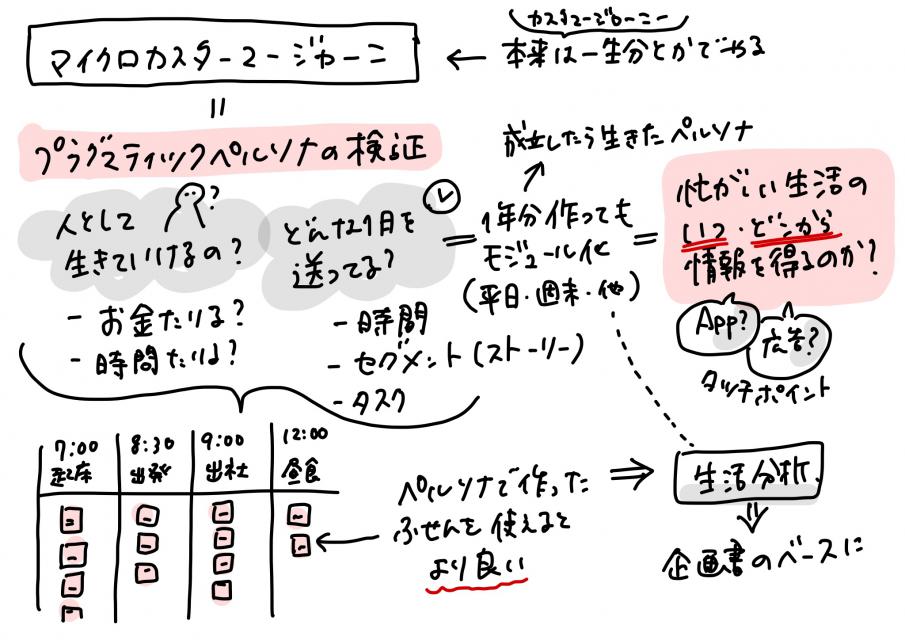 マイクロカスタマージャーニ
カスタマージャーニー
← 本来は一生分とかでやる
=
プラグマティックペルソナの検証
人として
生きていけるの?
?
- お金たりる?
- 時間たりる?
どんな1日を
送ってる?
- 時間
- セグメント(ストーリー)
- タスク
=
成立したら生きたペルソナ
1年分作っても
モジュール化
(平日・週末・他)
=
忙がしい生活の
いつ・どこから
情報を得るのか?
App?
広告?
タッチポイント
7:00
起床
8:30
出発
9:00
出社
12:00
昼食
← ペルソナで作った
ふせんを使えると
より良い
⇒ 生活分析
企画書のベースに